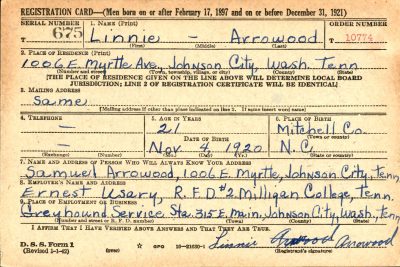 REGISTRATION CARD—(Men born on or after February 17, 1897 and on or before December 31, 1921)
SERIAL NUMBER 1. NAME (Print) ORDER NUMBER
T 675 Linnie - Arrowood 10774
(First) (Middle) (Last)
2. PLACE OF RESIDENCE (Print)
1006 E. Myrtle Ave., Johnson City, Wash. Tenn
(Number and street) (Town, township, village, or city) (County) (State)
[THE PLACE OF RESIDENCE GIVEN ON THE LINE ABOVE WILL DETERMINE LOCAL BOARD
JURISDICTION; LINE 2 OF REGISTRATION CERTIFICATE WILL BE IDENTICAL]
3. MAILING ADDRESS
Same
[Mailing address if other than place indicated on line 2. If same insert word same]
4. TELEPHONE 5. AGE IN YEARS 6. PLACE OF BIRTH
- 21 Mitchell Co.
DATE OF BIRTH (Town or county)
- Nov. 4, 1920 N.C.
(Exchange) (Number) (Mo.) (Day) (Yr.) (State or country)
7. NAME AND ADDRESS OF PERSON WHO WILL ALWAYS KNOW YOUR ADDRESS
Samuel Arrowood, 1006 E. Myrtle, Johnson City, Tenn
8. EMPLOYER'S NAME AND ADDRESS
Ernest Usary, R.F.D #2 Milligan College, Tenn.
9. PLACE OF EMPLOYMENT OR BUSINESS
Greyhound Service Sta. 315 E. Main, Johnson City, Wash, Tenn
(Number and street or R. F. D. number) (Town) (County) (State)
I AFFIRM THAT I HAVE VERIFIED ABOVE ANSWERS AND THAT THEY ARE TRUE.
D. S. S. Form 1
(Revised 1-1-42) GPO 16-21630-1 Linnie Arrowood Arrowood
(Registrant's signature)